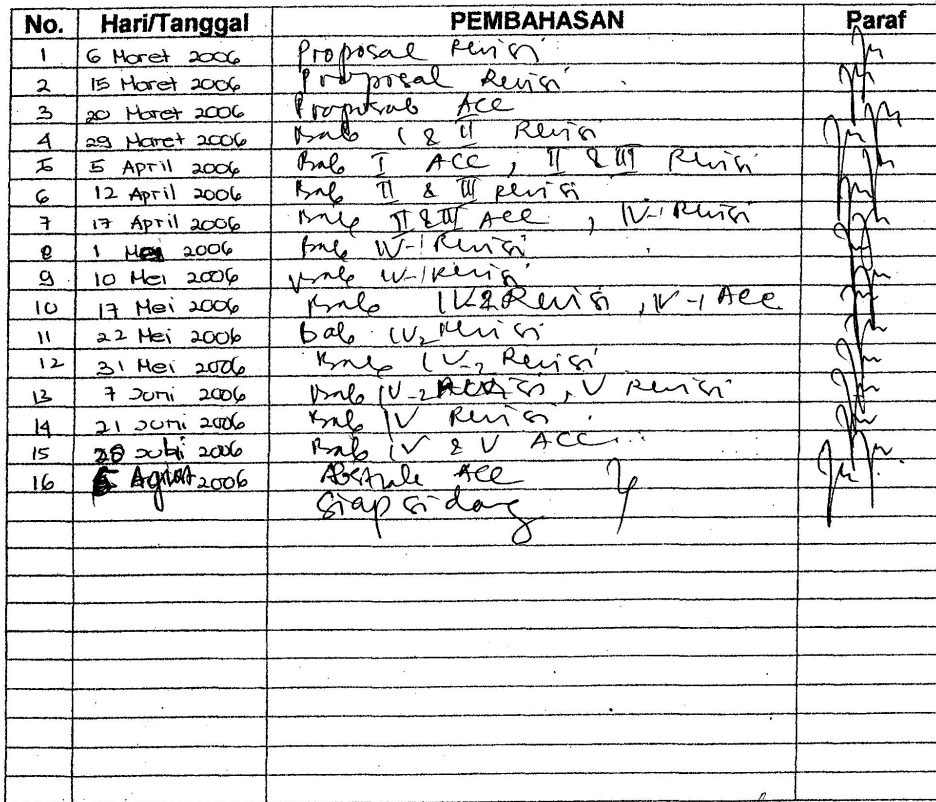 No. Hari/Tanggal PEMBAHASAN Paraf
1 6 Maret 2006 Proposal Revisi
2 15 Maret 2006 Proposal Revisi
3 20 Maret 2006 Proposal ACC
4 29 Maret 2006 Bab I & II Revisi
5 5 April 2006 Bab I ACC, II & III Revisi
6 12 April 2006 Bab II & III revisi
7 17 April 2006 Bab II & III ACC, IV-1 Revisi
8 1 Mei 2006 Bab IV-1 Revisi
9 10 Mei 2006 Bab IV-1 Revisi
10 17 Mei 2006 Bab IV-2 Revisi, IV-1 ACC
11 22 Mei 2006 bab IV2 Revisi
12 31 Mei 2006 Bab IV-2 Revisi
13 7 Juni 2006 Bab IV-2 Revisi, V Revisi
14 21 Juni 2006 Bab IV Revisi.
15 28 Juli 2006 Bab IV & V ACC
16 Agust 2006 Abstrak ACC
Siap sidang